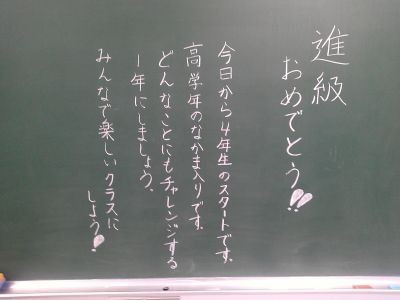 進級
おめでとう!!
今日から4年生のスタートです。
高学年のなかま入りです。
どんなことにもチャレンジする
1年にしましょう。
みんなで楽しいクラスに
しよう!